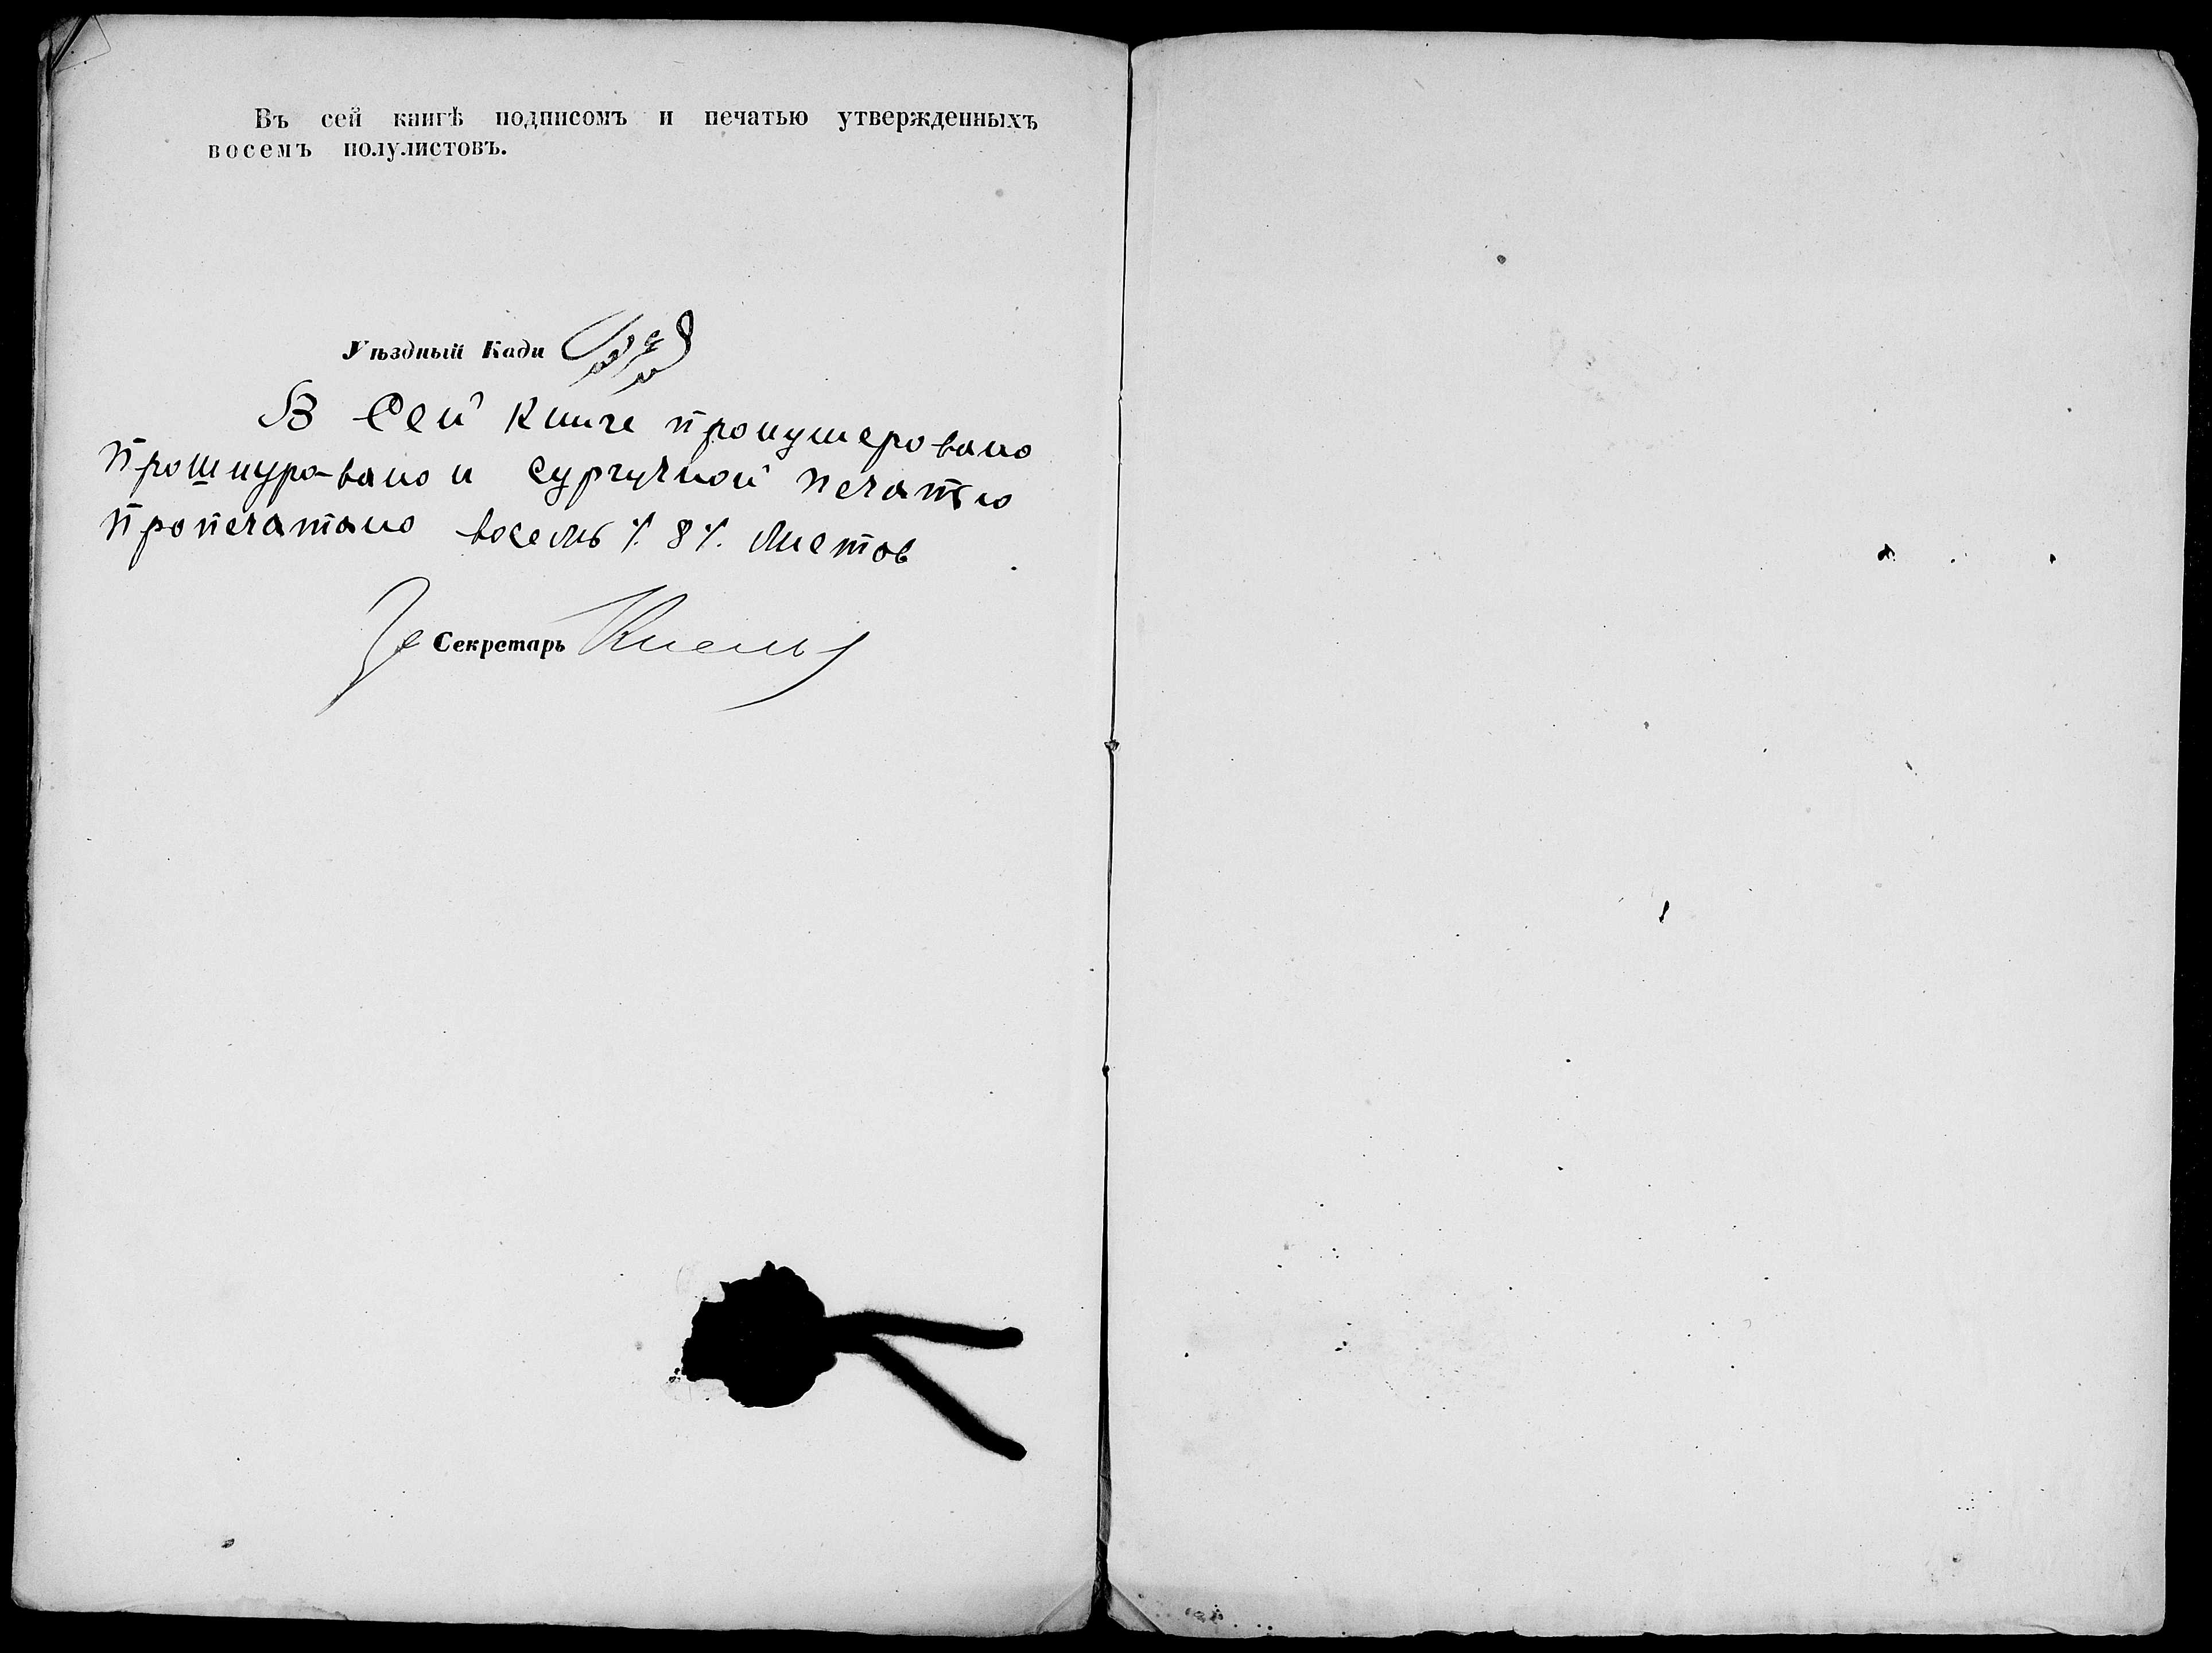 Въ сей книгѣ подписомъ и печатью утвержденныхъ
восемъ полулистовъ.
Уѣздный Кади
В Сей книге пронумеровано
прошнуровано и сургучной печатью
пропечатано восемь ./. 8 ./. листов
Секретарь